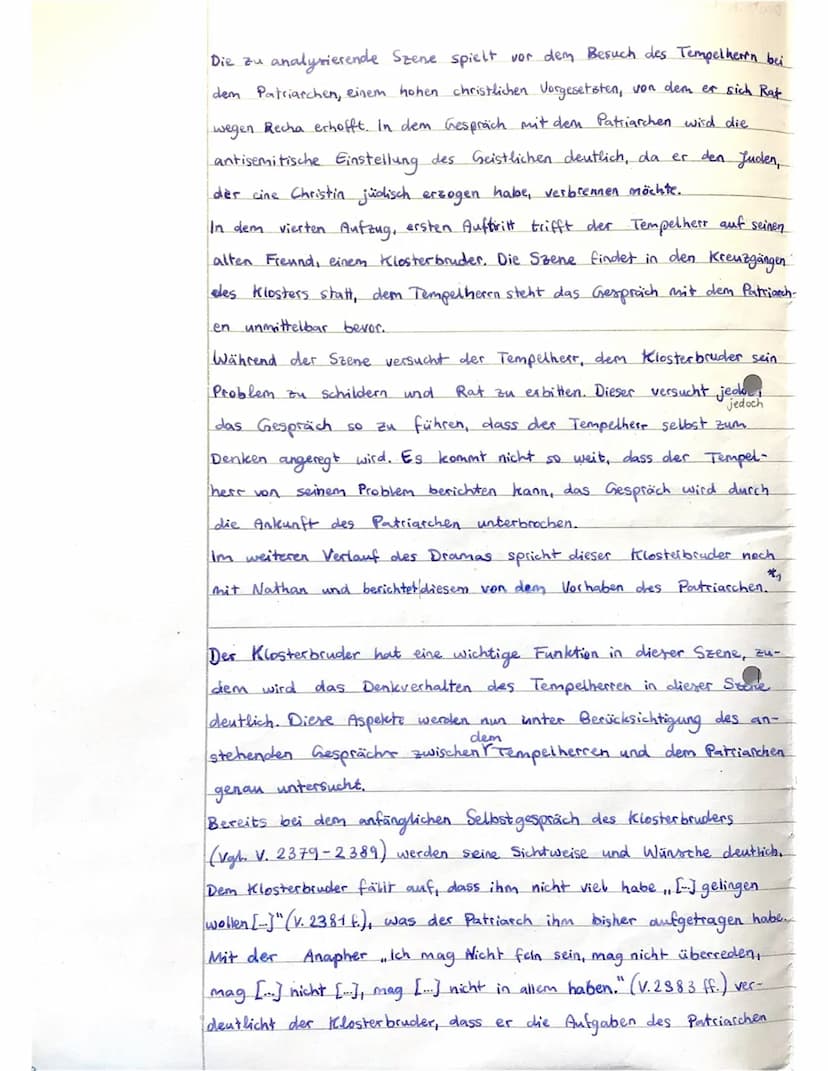 Die zu analysierende Szene spielt vor dem Besuch des Tempelherrn bei
dem Patriarchen, einem hohen christlichen Vorgesetzten, von dem er sich Rat
wegen Recha erhofft. In dem Gespräch mit dem Patriarchen wird die
antisemitische Einstellung des Geistlichen deutlich, da er den Juden,
der eine Christin jüdisch erzogen habe, verbrennen möchte.
In dem vierten Aufzug, ersten Auftritt trifft der Tempelherr auf seinen
alten Freund, einem Klosterbruder. Die Szene findet in den Kreuzgängen
des Klosters statt, dem Tempelherrn steht das Gespräch mit dem Patriarch-
en unmittelbar bevor.
Während der Szene versucht der Tempelherr, dem Klosterbruder sein
Problem zu schildern und Rat zu erbitten. Dieser versucht
jedoch
das Gespräch so zu führen, dass der Tempelherr selbst zum
Denken angeregt wird. Es kommt nicht so weit, dass der Tempel-
herr von seinem Problem berichten kann, das Gespräch wird durch
die Ankunft des Patriarchen unterbrochen.
Im weiteren Verlauf des Dramas spricht dieser Klosterbruder noch
mit Nathan und berichtet diesem von dem Vorhaben des Patriarchen. *1
Der Klosterbruder hat eine wichtige Funktion in dieser Szene, zu-
dem wird das Denkverhalten des Tempelherren in dieser Szene
deutlich. Diese Aspekte werden nun unter Berücksichtigung des an-
dem
stehenden Gesprächs zwischen Tempelherren und dem Patriarchen
genau untersucht.
Bereits bei dem anfänglichen Selbstgespräch des Klosterbruders
(vgl. V. 2379-2389) werden seine Sichtweise und Wünsche deutlich.
Dem Klosterbruder fällt auf, dass ihm nicht viel habe „[...] gelingen
wollen [...]" (V. 2381 f.), was der Patriarch ihm bisher aufgetragen habe.
Mit der Anapher „Ich mag Nicht fein sein, mag nicht überreden,
mag [...] nicht [...], mag [...] nicht in allem haben." (V. 2983 ff.) ver-
deutlicht der Klosterbruder, dass er die Aufgaben des Patriarchen